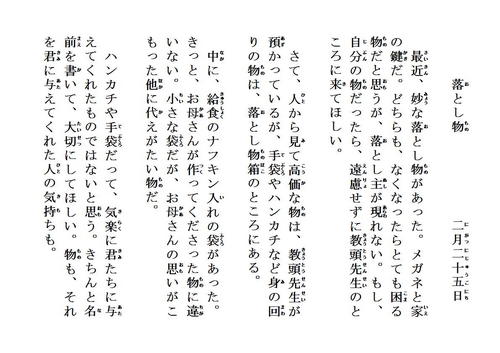 落とし物
二月二十五日
最近、妙な落とし物があった。メガネと家
の鍵だ。どちらも、なくなったらとても困る
物だと思うが、落とし主が現れない。もし、
自分の物だったら、遠慮せずに教頭先生のと
ころに来てほしい。
さて、人から見て高価な物は、教頭先生が
預かっているが、手袋やハンカチなど身の回
りの物は、落とし物箱のところにある。
中に、給食のナフキン入れの袋があった。
きっと、お母さんが作ってくださった物に違
いない。小さな袋だが、お母さんの思いがこ
もった他に代えがたい物だ。
ハンカチや手袋だって、気楽に君たちに与
えてくれたものではないと思う。きちんと名
前を書いて、大切にしてほしい。物も、それ
を君に与えてくれた人の気持ちも。